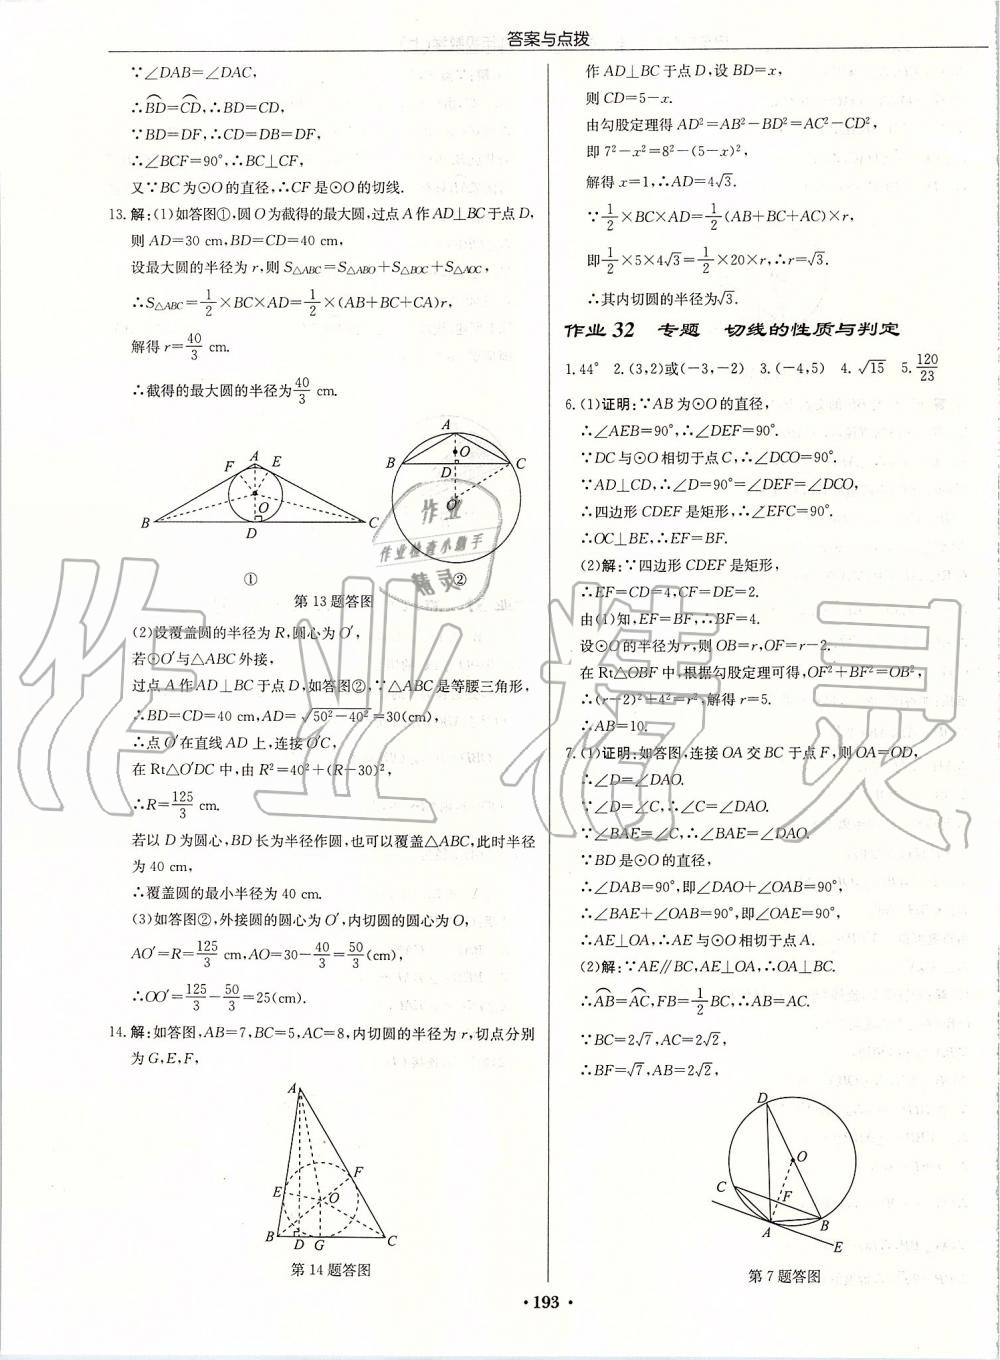 答案与点拨
∵∠DAB=∠DAC,
∴B͡D=C͡D,∴BD=CD,
∵BD=DF,∴CD=DB=DF,
∴∠BCF=90°,∴BC⊥CF,
又∵BC为⊙O的直径,∴CF是⊙O的切线.
13.解:(1)如答图①,圆O为截得的最大圆,过点A作AD⊥BC于点D,
则AD=30 cm,BD=CD=40 cm,
设最大圆的半径为r,则S△ABC=S△ABO+S△BOC+S△AOC,
∴S△ABC=1/2×BC×AD=1/2×(AB+BC+CA)r,
解得r=40/3 cm.
∴截得的最大圆的半径为40/3 cm.
A
F E
O
B D C
①
A
O
B D C
O′
②
第13题答图
(2)设覆盖圆的半径为R,圆心为O′,
若⊙O′与△ABC外接,
过点A作AD⊥BC于点D,如答图②,∵△ABC是等腰三角形,
∴BD=CD=40 cm,AD=√(50²-40²)=30(cm),
∴点O′在直线AD上,连接O′C,
在Rt△O′DC中,由R²=40²+(R-30)²,
∴R=125/3 cm.
若以D为圆心,BD长为半径作圆,也可以覆盖△ABC,此时半径
为40 cm,
∴覆盖圆的最小半径为40 cm.
(3)如答图②,外接圆的圆心为O′,内切圆的圆心为O,
AO′=R=125/3 cm,AO=30-40/3=50/3(cm),
∴OO′=125/3-50/3=25(cm).
14.解:如答图,AB=7,BC=5,AC=8,内切圆的半径为r,切点分别
为G,E,F,
A
F
E O
B D G C
第14题答图
作AD⊥BC于点D,设BD=x,
则CD=5-x.
由勾股定理得AD²=AB²-BD²=AC²-CD²,
即7²-x²=8²-(5-x)²,
解得x=1,∴AD=4√3.
∵1/2×BC×AD=1/2(AB+BC+AC)×r,
即1/2×5×4√3=1/2×20×r,∴r=√3.
∴其内切圆的半径为√3.
作业32 专题 切线的性质与判定
1.44° 2.(3,2)或(-3,-2) 3.(-4,5) 4.√15 5.120/23
6.(1)证明:∵AB为⊙O的直径,
∴∠AEB=90°,∴∠DEF=90°.
∵DC与⊙O相切于点C,∴∠DCO=90°.
∵AD⊥CD,∴∠D=90°=∠DEF=∠DCO,
∴四边形CDEF是矩形,∴∠EFC=90°.
∴OC⊥BE,∴EF=BF.
(2)解:∵四边形CDEF是矩形,
∴EF=CD=4,CF=DE=2.
由(1)知,EF=BF,∴BF=4.
设⊙O的半径为r,则OB=r,OF=r-2.
在Rt△OBF中,根据勾股定理可得,OF²+BF²=OB²,
∴(r-2)²+4²=r²,解得r=5.
∴AB=10.
7.(1)证明:如答图,连接OA交BC于点F,则OA=OD,
∴∠D=∠DAO.
∵∠D=∠C,∴∠C=∠DAO.
∵∠BAE=∠C,∴∠BAE=∠DAO.
∵BD是⊙O的直径,
∴∠DAB=90°,即∠DAO+∠OAB=90°,
∴∠BAE+∠OAB=90°,即∠OAE=90°,
∴AE⊥OA,∴AE与⊙O相切于点A.
(2)解:∵AE∥BC,AE⊥OA,∴OA⊥BC.
∴A͡B=A͡C,FB=1/2BC,∴AB=AC.
∵BC=2√7,AC=2√2,
∴BF=√7,AB=2√2,
D
O
C F
A B
E
第7题答图
·193·
作业
作业检查小助手
精灵
作业精灵